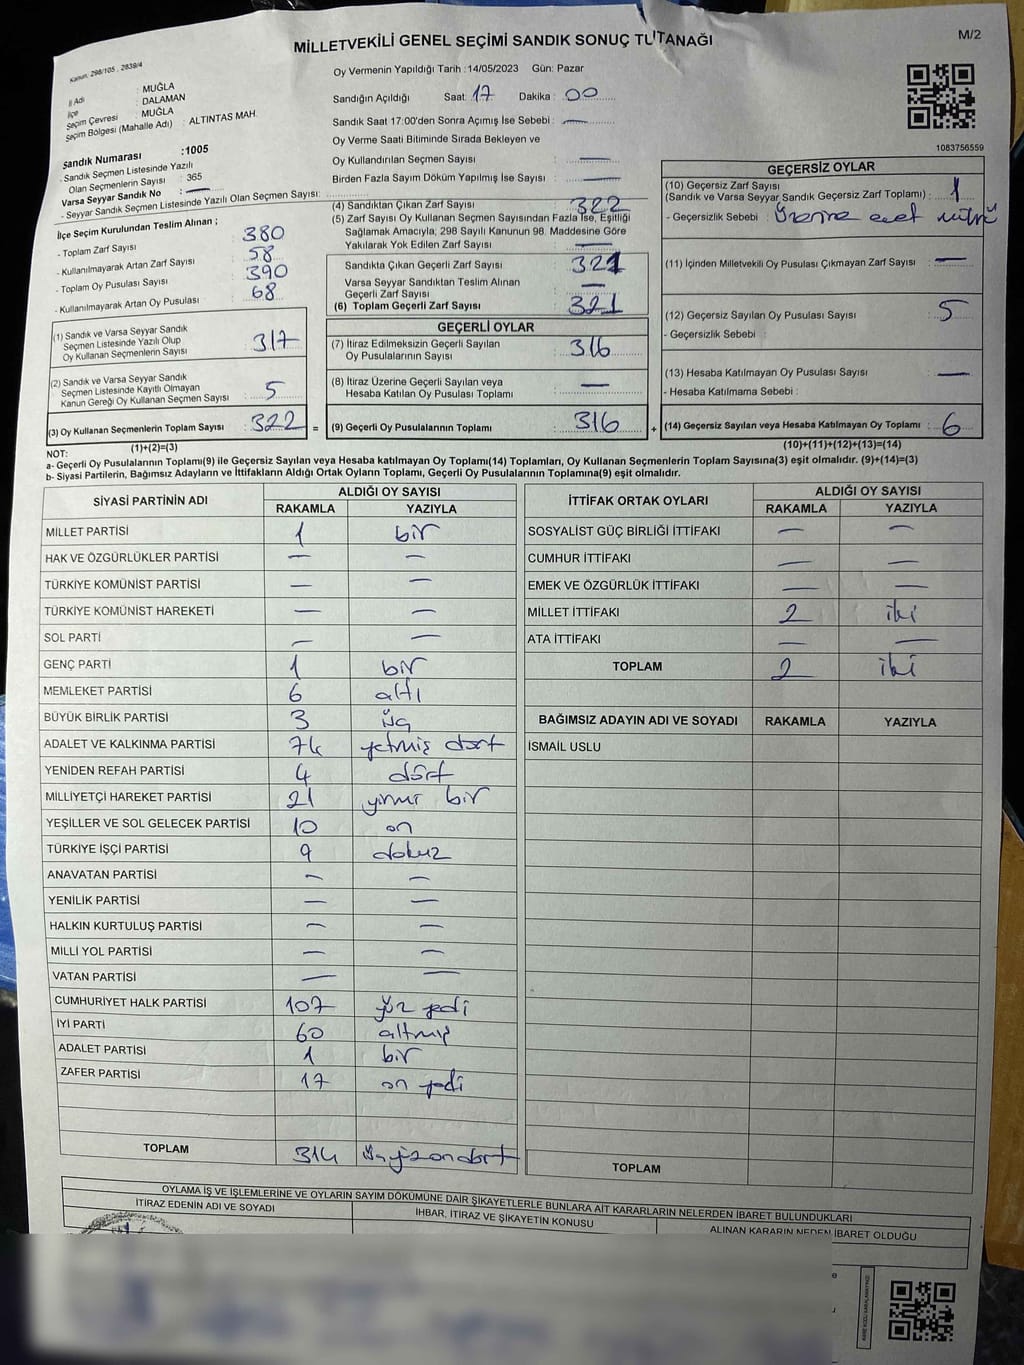 MİLLETVEKİLİ GENEL SEÇİMİ SANDIK SONUÇ TUTANAĞI
M/2
Kanun: 298/105 , 2839/4
İl Adı : MUĞLA
İlçe : DALAMAN
Seçim Çevresi : MUĞLA
Seçim Bölgesi (Mahalle Adı) : ALTINTAS MAH.
Sandık Numarası :1005
- Sandık Seçmen Listesinde Yazılı
Olan Seçmenlerin Sayısı : 365
Varsa Seyyar Sandık No : —
- Seyyar Sandık Seçmen Listesinde Yazılı Olan Seçmen Sayısı:
Oy Vermenin Yapıldığı Tarih :14/05/2023 Gün: Pazar
Sandığın Açıldığı Saat: 17 Dakika : 00
Sandık Saat 17:00'den Sonra Açımış İse Sebebi : —
Oy Verme Saati Bitiminde Sırada Bekleyen ve
Oy Kullandırılan Seçmen Sayısı : —
Birden Fazla Sayım Döküm Yapılmış İse Sayısı : —
1083756559
İlçe Seçim Kurulundan Teslim Alınan ;
- Toplam Zarf Sayısı : 380
- Kullanılmayarak Artan Zarf Sayısı : 58
- Toplam Oy Pusulası Sayısı : 390
- Kullanılmayarak Artan Oy Pusulası : 68
(1) Sandık ve Varsa Seyyar Sandık
Seçmen Listesinde Yazılı Olup
Oy Kullanan Seçmenlerin Sayısı : 317
(2) Sandık ve Varsa Seyyar Sandık
Seçmen Listesinde Kayıtlı Olmayan
Kanun Gereği Oy Kullanan Seçmen Sayısı : 5
(3) Oy Kullanan Seçmenlerin Toplam Sayısı : 322 =
(1)+(2)=(3)
(4) Sandıktan Çıkan Zarf Sayısı : 322
(5) Zarf Sayısı Oy Kullanan Seçmen Sayısından Fazla İse, Eşitliği
Sağlamak Amacıyla, 298 Sayılı Kanunun 98. Maddesine Göre
Yakılarak Yok Edilen Zarf Sayısı : —
Sandıkta Çıkan Geçerli Zarf Sayısı : 321
Varsa Seyyar Sandıktan Teslim Alınan
Geçerli Zarf Sayısı : —
(6) Toplam Geçerli Zarf Sayısı : 321
GEÇERLİ OYLAR
(7) İtiraz Edilmeksizin Geçerli Sayılan
Oy Pusulalarının Sayısı : 316
(8) İtiraz Üzerine Geçerli Sayılan veya
Hesaba Katılan Oy Pusulası Toplamı : —
(9) Geçerli Oy Pusulalarının Toplamı : 316 +
GEÇERSİZ OYLAR
(10) Geçersiz Zarf Sayısı
(Sandık ve Varsa Seyyar Sandık Geçersiz Zarf Toplamı) : 1
- Geçersizlik Sebebi : Üzerine evet mührü
(11) İçinden Milletvekili Oy Pusulası Çıkmayan Zarf Sayısı : —
(12) Geçersiz Sayılan Oy Pusulası Sayısı : 5
- Geçersizlik Sebebi :
(13) Hesaba Katılmayan Oy Pusulası Sayısı : —
- Hesaba Katılmama Sebebi :
(14) Geçersiz Sayılan veya Hesaba Katılmayan Oy Toplamı : 6
(10)+(11)+(12)+(13)=(14)
NOT:
a- Geçerli Oy Pusulalarının Toplamı(9) ile Geçersiz Sayılan veya Hesaba katılmayan Oy Toplamı(14) Toplamları, Oy Kullanan Seçmenlerin Toplam Sayısına(3) eşit olmalıdır. (9)+(14)=(3)
b- Siyasi Partilerin, Bağımsız Adayların ve İttifakların Aldığı Ortak Oyların Toplamı, Geçerli Oy Pusulalarının Toplamına(9) eşit olmalıdır.
SİYASİ PARTİNİN ADI ALDIĞI OY SAYISI
RAKAMLA YAZIYLA
MİLLET PARTİSİ 1 bir
HAK VE ÖZGÜRLÜKLER PARTİSİ — —
TÜRKİYE KOMÜNİST PARTİSİ — —
TÜRKİYE KOMÜNİST HAREKETİ — —
SOL PARTİ — —
GENÇ PARTİ 1 bir
MEMLEKET PARTİSİ 6 altı
BÜYÜK BİRLİK PARTİSİ 3 üç
ADALET VE KALKINMA PARTİSİ 74 yetmiş dört
YENİDEN REFAH PARTİSİ 4 dört
MİLLİYETÇİ HAREKET PARTİSİ 21 yirmi bir
YEŞİLLER VE SOL GELECEK PARTİSİ 10 on
TÜRKİYE İŞÇİ PARTİSİ 9 dokuz
ANAVATAN PARTİSİ — —
YENİLİK PARTİSİ — —
HALKIN KURTULUŞ PARTİSİ — —
MİLLİ YOL PARTİSİ — —
VATAN PARTİSİ — —
CUMHURİYET HALK PARTİSİ 107 yüz yedi
İYİ PARTİ 60 altmış
ADALET PARTİSİ 1 bir
ZAFER PARTİSİ 17 on yedi
TOPLAM 314 üçyüzondört
İTTİFAK ORTAK OYLARI ALDIĞI OY SAYISI
RAKAMLA YAZIYLA
SOSYALİST GÜÇ BİRLİĞİ İTTİFAKI — —
CUMHUR İTTİFAKI — —
EMEK VE ÖZGÜRLÜK İTTİFAKI — —
MİLLET İTTİFAKI 2 iki
ATA İTTİFAKI — —
TOPLAM 2 iki
BAĞIMSIZ ADAYIN ADI VE SOYADI RAKAMLA YAZIYLA
İSMAİL USLU
TOPLAM
OYLAMA İŞ VE İŞLEMLERİNE VE OYLARIN SAYIM DÖKÜMÜNE DAİR ŞİKAYETLERLE BUNLARA AİT KARARLARIN NELERDEN İBARET BULUNDUKLARI
İTİRAZ EDENİN ADI VE SOYADI
İHBAR, İTİRAZ VE ŞİKAYETİN KONUSU
ALINAN KARARIN NEDEN İBARET OLDUĞU